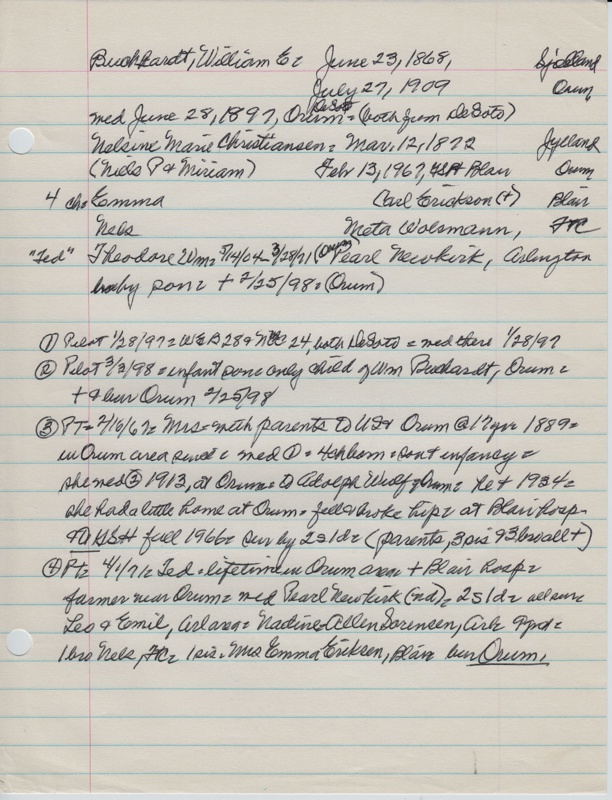 Buckhardt, William E= June 23, 1868, Sjelland
July 27, 1909 Orum
med June 28, 1897, Orum = (both from DeSoto)
DeSoto
Nelsine Marie Christiansen = Mar. 12, 1872 Jylland
(Niels P & Miriam) Febr 13, 1967, Blair Orum
4 ch = Emma Carl Erickson (+) Blair
Nels Meta Wolsmann, FC
"Ted" Theodore Wm = 5/14/04 - 3/28/71 (Orum) Pearl Newkirk, Arlington
baby son = + 2/25/98 = (Orum)
① Pilot 1/28/97 = WEB 28 & NMC 24, both DeSoto = med there 1/28/97
② Pilot 3/3/98 = infant son = only child of Wm Buchardt, Orum =
+ & bur Orum 2/25/98
③ PT = 2/16/67 = Mrs = with parents to US & Orum @ 17 yrs 1889 =
in Orum area since = med ① = 4 ch born = son + infancy =
she med ② 1913, at Orum = to Adolph Wulf of Orum = he + 1934 =
she had a little home at Orum = fell & broke hip = at Blair hosp
fall 1966 = sur by 2s 1d = (parents, 3 sis 93 bro all +)
④ PT = 4/1/71 = Ted = lifetime in Orum area + Blair hosp =
farmer near Orum = med Pearl Newkirk (nd) = 2s 1d = all sur =
Leo & Emil, Arl area = Nadine = Allen Sorensen, Arl = 9 gnd =
1 bro Nels, FC = 1 sis = Mrs Emma Eriksen, Blair bur Orum.